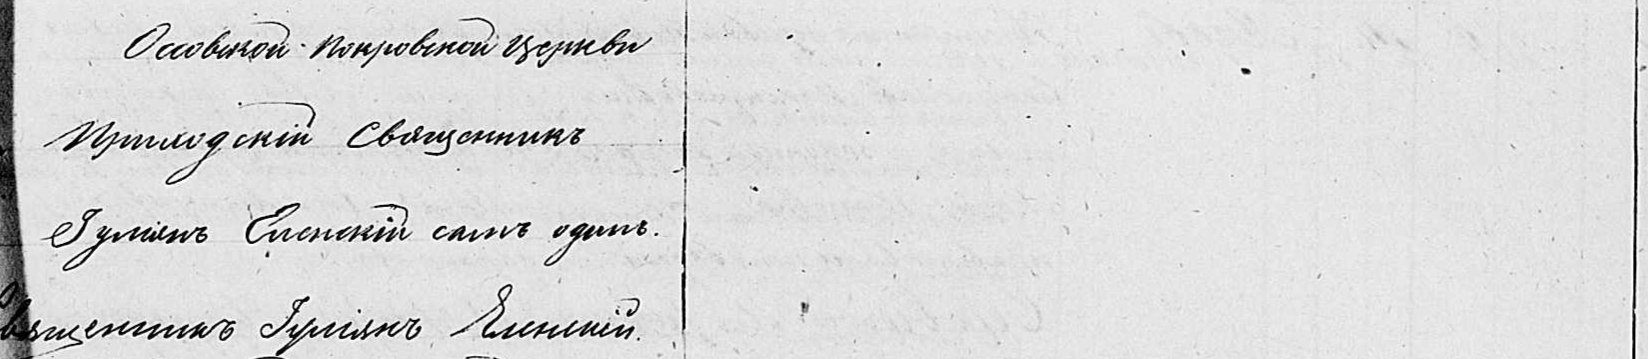 Оссовской Покровской Церкви
Приходскій Священникъ
Іуліянъ Еленскій самъ одинъ.
Священникъ Іуліянъ Еленскій.